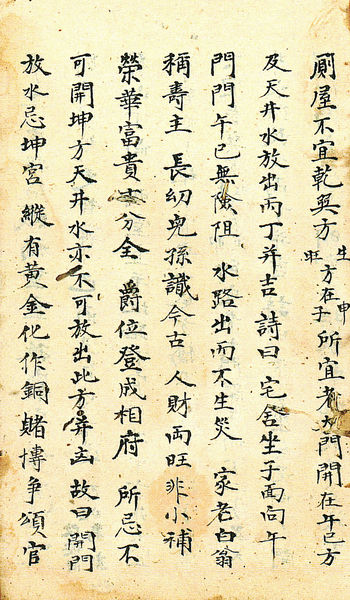 廁屋不宜乾巽方生旺方在申子所宜者大門開在午巳方
及天井水放出丙丁并吉詩曰宅舍坐子面向午
門門午巳無隂阻水路出而不生災家老白翁
稱壽主長幼兒孫識今古人財両旺非小補
榮華富貴十分全爵位登成相府所忌不
可開坤方天井水亦不可放出此方弄凶故曰開門
放水忌坤宮縱有黃金化作銅賭博争頌官